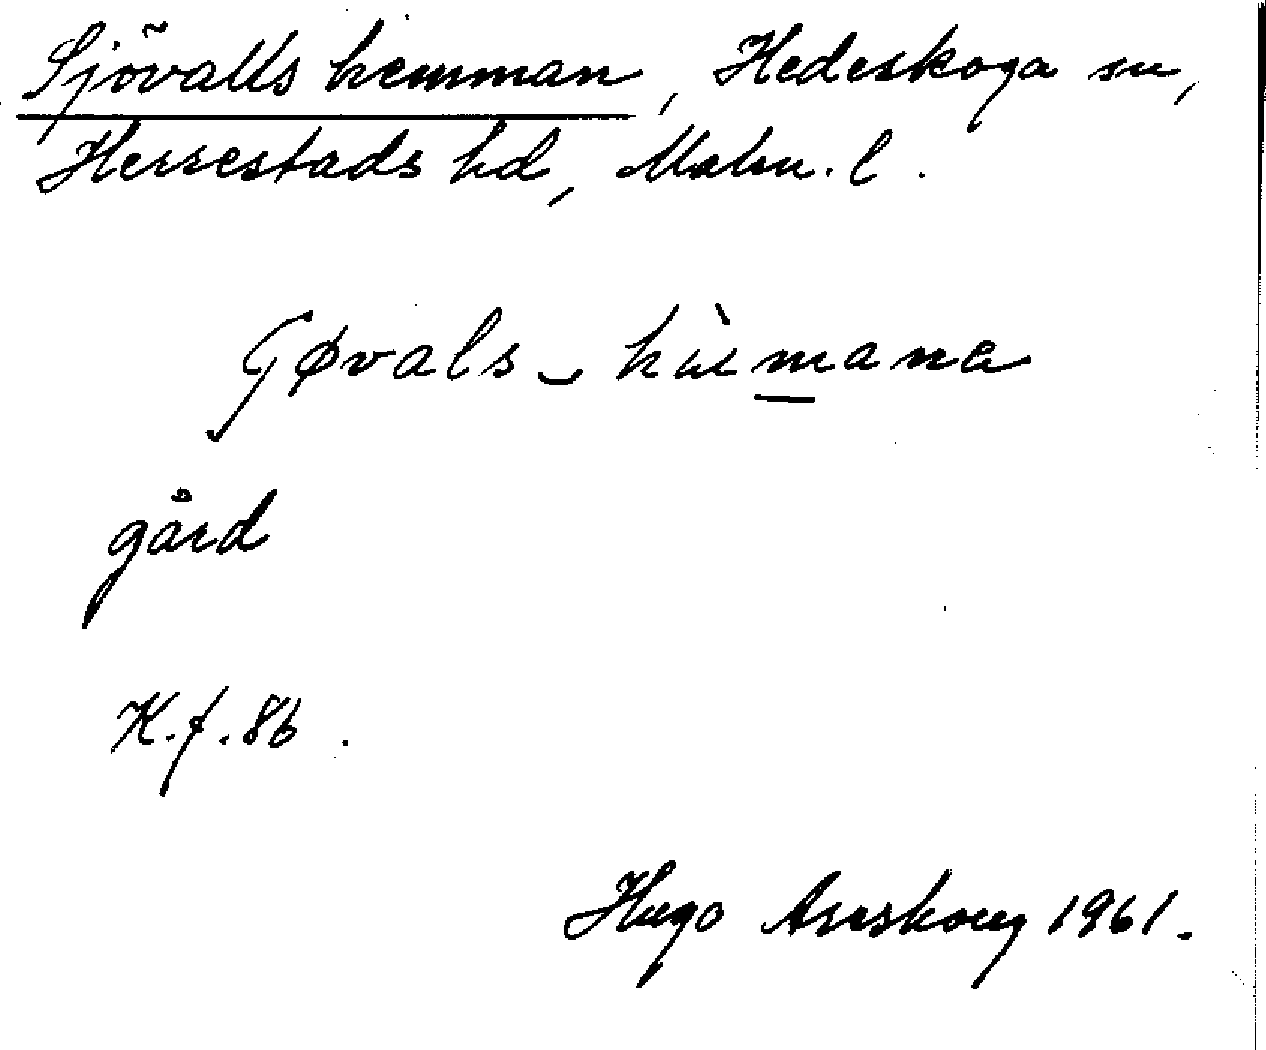 Sjövalls hemman, Hedeskoga sn,
Herrestads hd, Malm. l.
hùmana
gård
K.f. 86.
Hugo Areskoug 1961.